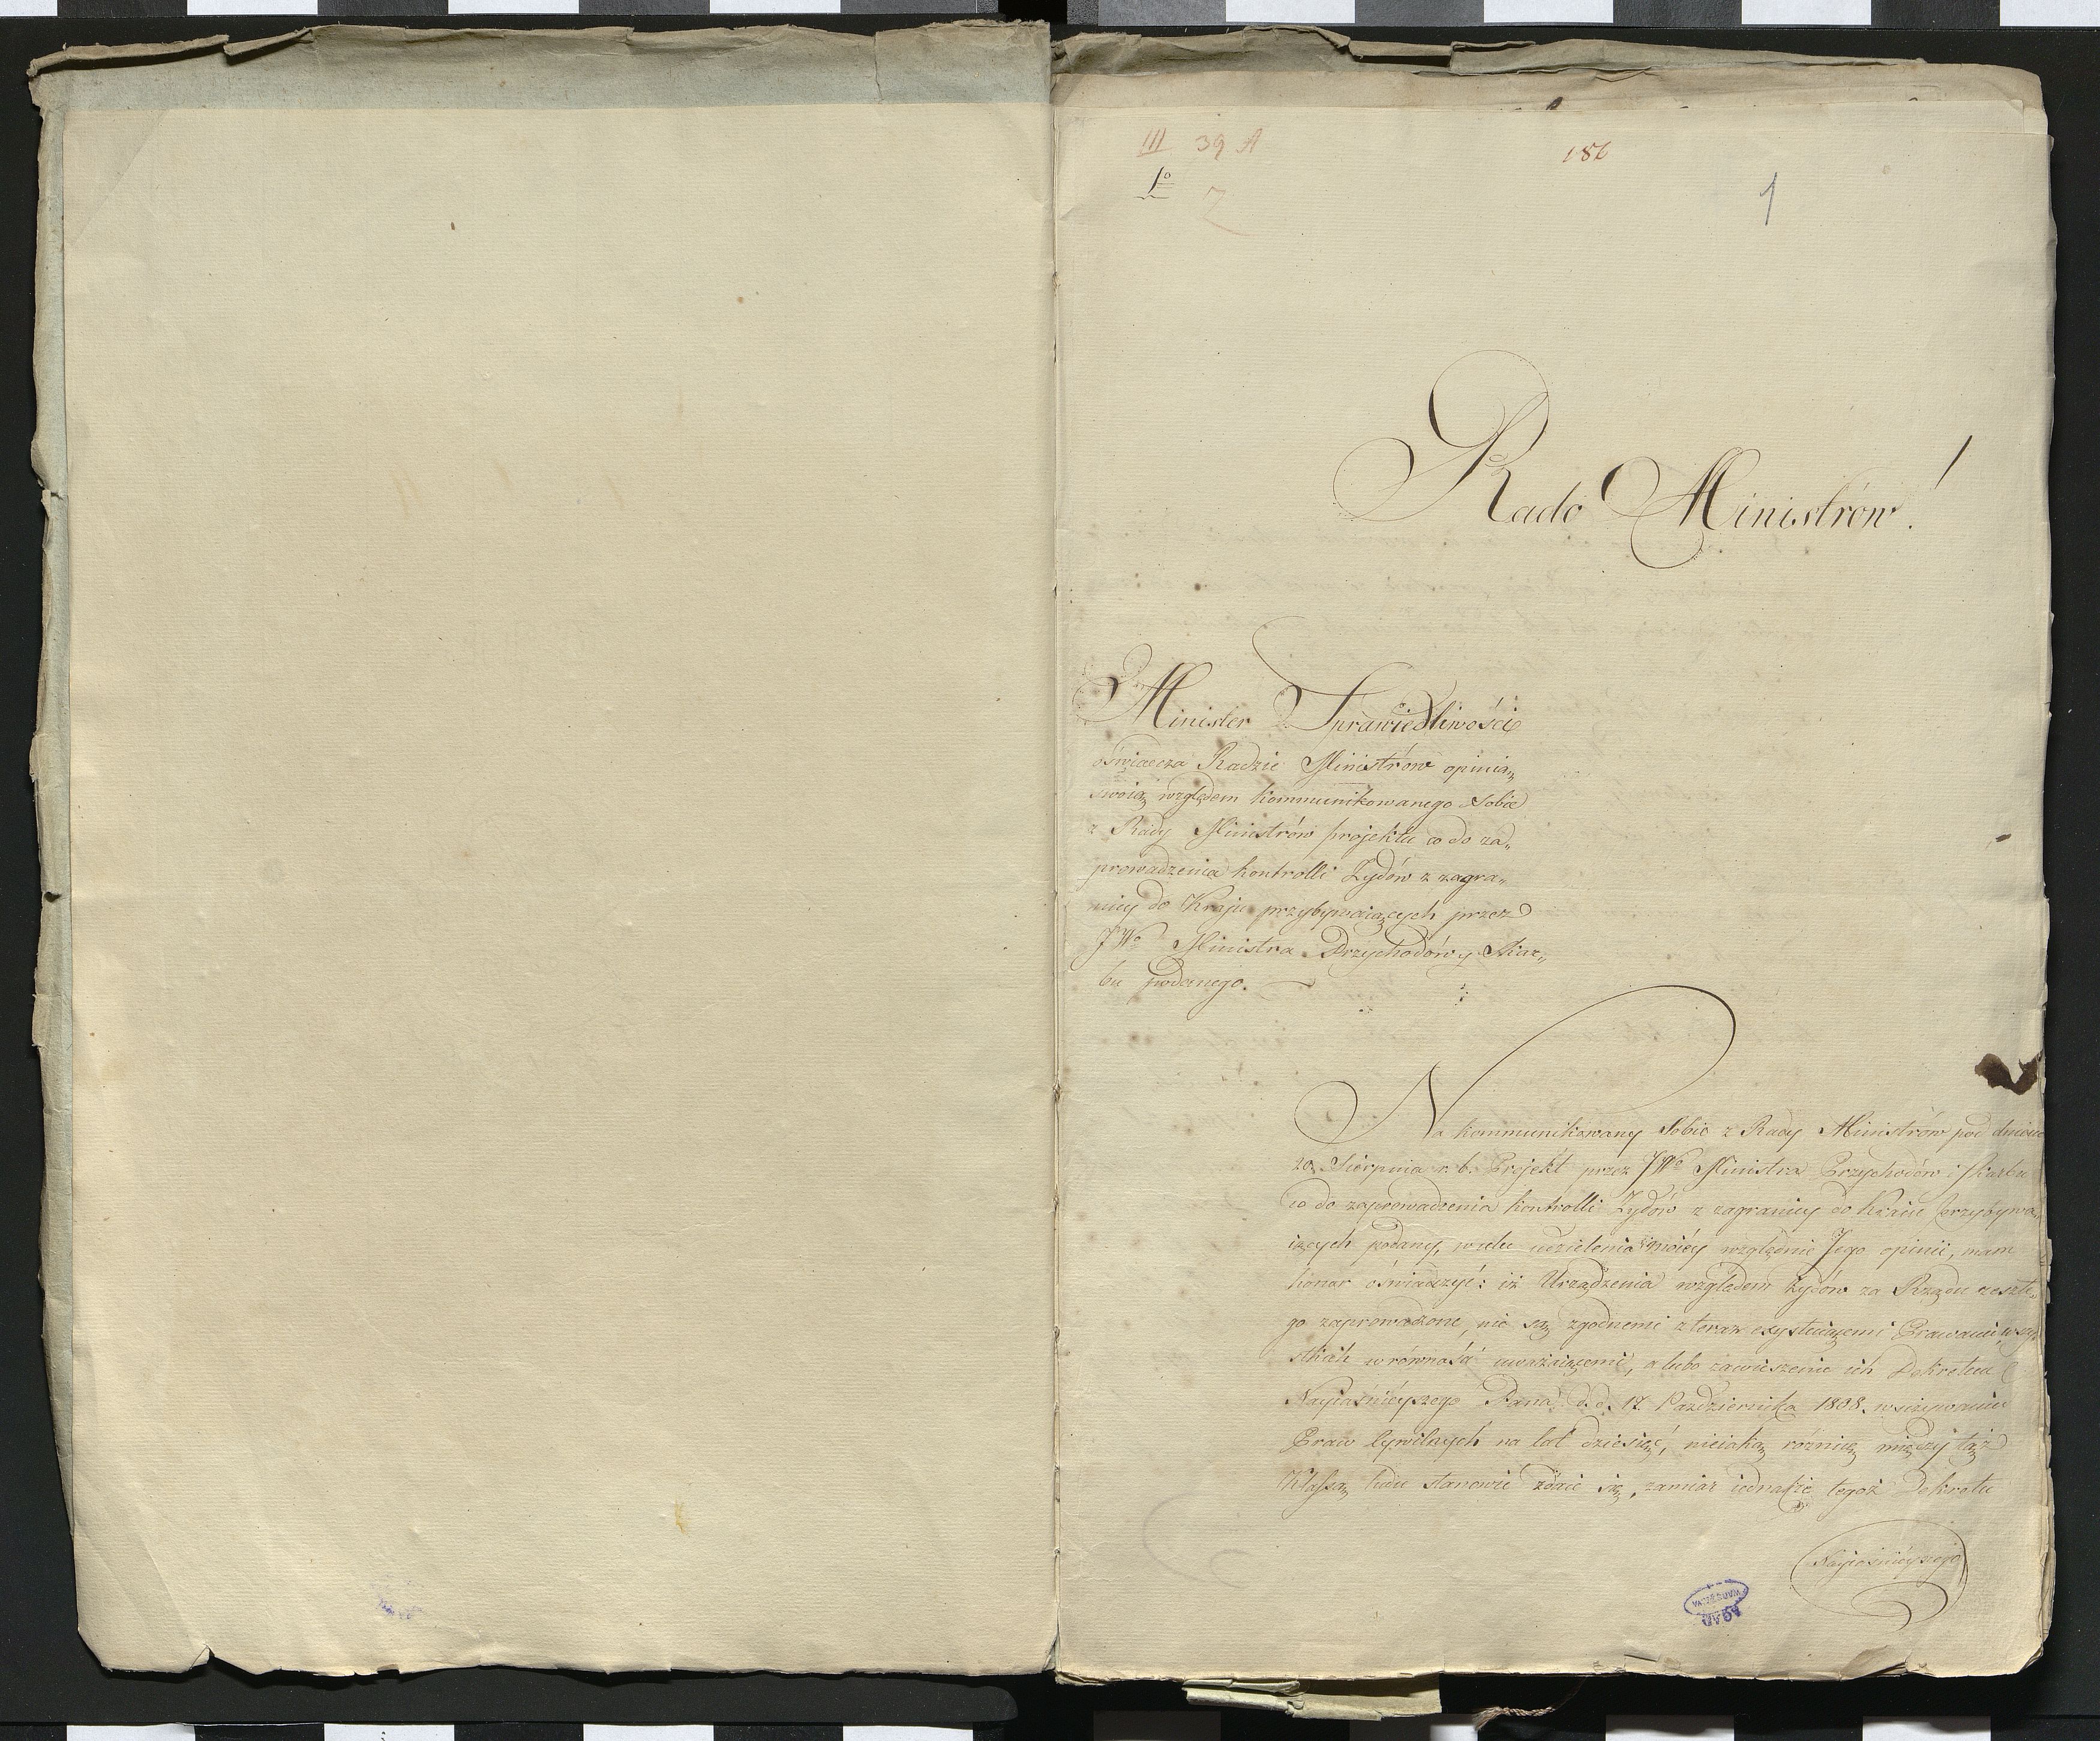 III 39 A
186
1º
2
1
Rado Ministrów!
Minister Sprawiedliwości
oświadcza Radzie Ministrów opinią
swoią względem kommunikowanego Sobie
z Rady Ministrów projektu co do za„
prowadzenia kontrolli Żydów z zagra„
nicy do Kraju przybywaiących przez
JWº Ministra Przychodów y Skar„
bu podanego.
Na kommunikowany Sobie z Rady Ministrów pod dniem
20 Sierpnia r. b. Projekt przez JWº Ministra Przychodów i Skarbu
co do zaprowadzenia kontrolli Żydów z zagranicy do Kraiu przybywa„
iących podany, w celu udzielenia moiéy względnie Jego opinii, mam
honor oświadczyć: iż Urządzenia względem żydów za Rządu zeszłe„
go zaprowadzone, nie są zgodnemi z teraz exystuiącemi Prawami wszy„
stkich w równość uważaiącemi, a lubo zawieszenie ich Dekretem
Nayiaśniéyszego Pana d. d. 17. Października 1808. w używaniu
Praw Cywilnych na lat dziesięć, nieiaką różnicę między tąż
Klassą ludu stanowić zdaie się, zamiar iednakże tegoż Dekretu
Nayiaśniéyszego
AGAD
WARSZAWA